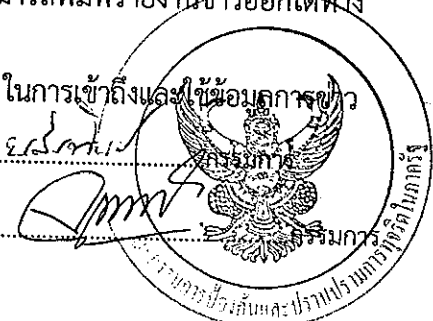 ารถพิมพ์รายงานข่าวออกได้ทาง
ในการเข้าถึงและใช้ข้อมูลการข่าว
กรรมการ
กรรมการ
กรรมการป้องกันและปราบปรามการทุจริตในภาครัฐ